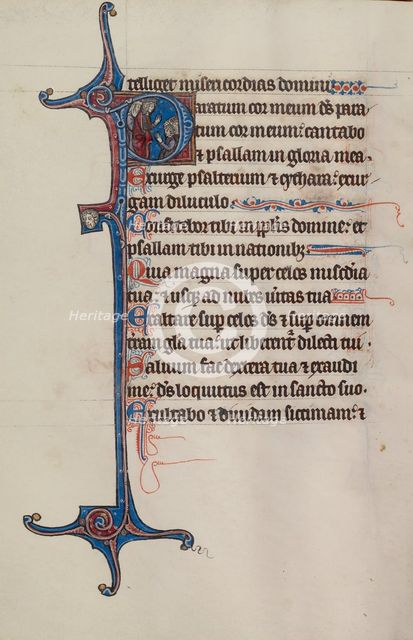 telliget misericordias domini
Paratum cor meum ds para
tum cor meum: cantabo
& psallam in gloria mea.
Exurge psalterium & cythara: exur
gam diluculo.
Confitebor tibi in pplis domine: et
psallam tibi in nationib;
Quia magna super celos miscdia
tua: & usq; ad nubes uitas tua
Exaltare sup celos ds & sup omnem
tram gla tua: ut liberentr dilecti tui
Saluum fac dextera tua & exaudi
me: ds loquutus est in sancto suo.
Exultabo & diuidam siccimam: &
Heritage Heritage